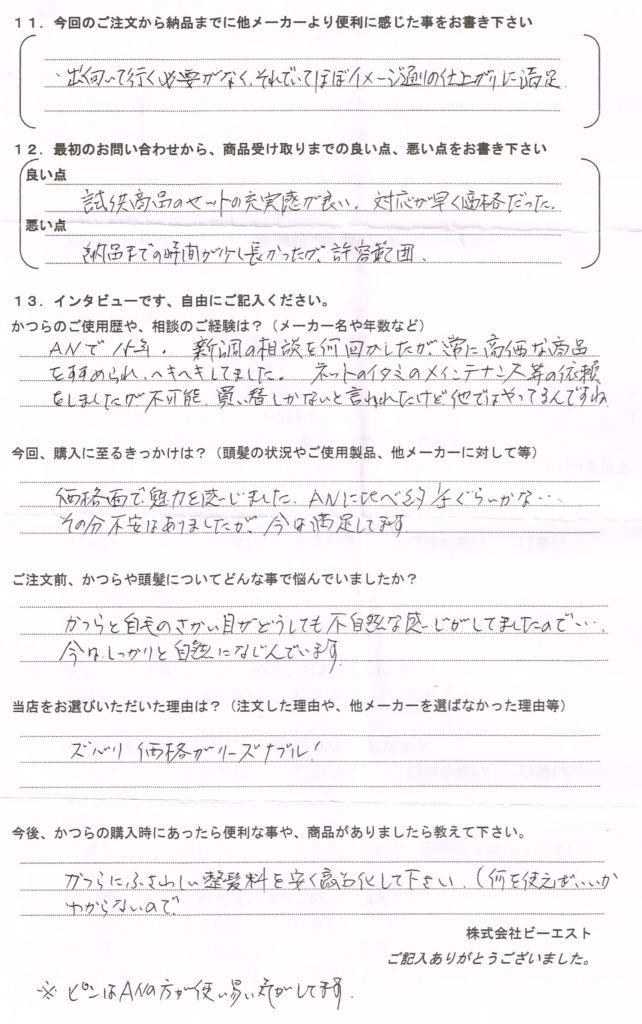 １１．今回のご注文から納品までに他メーカーより便利に感じた事をお書き下さい
・出向いて行く必要がなく、それでいてほぼイメージ通りの仕上がりに満足
１２．最初のお問い合わせから、商品受け取りまでの良い点、悪い点をお書き下さい
良い点
試供商品のセットの充実感が良い。対応が早く価格だった。
悪い点
納品までの時間が少し長かったが、許容範囲．
１３．インタビューです、自由にご記入ください。
かつらのご使用歴や、相談のご経験は？（メーカー名や年数など）
ANで 年．新調の相談を何回かしたが、常に高価な商品
をすすめられ、ヘキヘキしてました。ネットのイタミのメインテナンス等の依頼
をしましたが不可能、買い替しかないと言われたけど他ではやってるんですね
今回、購入に至るきっかけは？（頭髪の状況やご使用製品、他メーカーに対して等）
価格面で魅力を感じました、ANに比べ約 ぐらいかな…
その分不安はありましたが、今は満足してます
ご注文前、かつらや頭髪についてどんな事で悩んでいましたか？
かつらと自毛のさかい目がどうしても不自然な感じがしてましたので…、
今は、しっかりと自然になじんでいます
当店をお選びいただいた理由は？（注文した理由や、他メーカーを選ばなかった理由等）
ズバリ 価格がリーズナブル！
今後、かつらの購入時にあったら便利な事や、商品がありましたら教えて下さい。
かつらにふさわしい整髪料を安く商品化して下さい．（何を使えばいいか
わからないので
株式会社ビーエスト
ご記入ありがとうございました。
※ ピンはANの方が使い易い気がしてます．